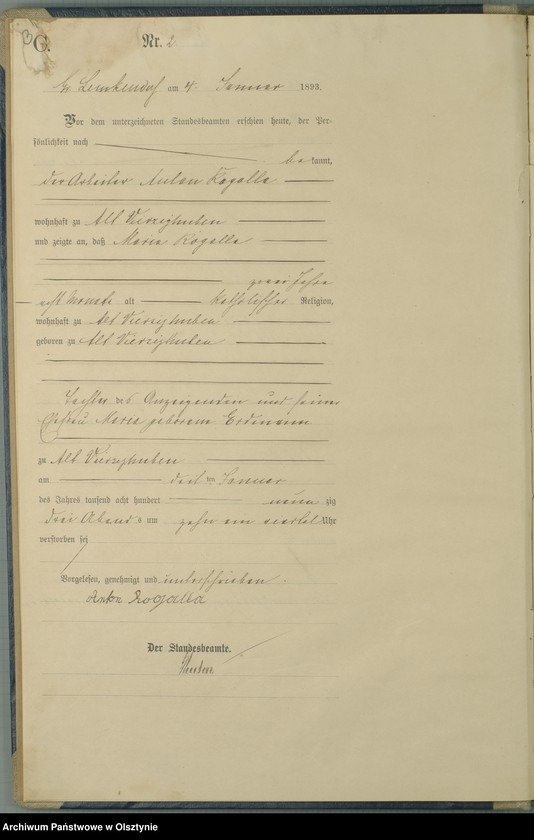 C.
Nr. 2
Gr. Lemkendorf am 4. Januar 1893.
Vor dem unterzeichneten Standesbeamten erschien heute, der Per-
sönlichkeit nach
be kannt,
der Arbeiter Anton Rogalla
wohnhaft zu Alt Vierzighuben
und zeigte an, daß Maria Rogalla
zwei Jahre
acht Monate alt katholischer Religion,
wohnhaft zu Alt Vierzighuben
geboren zu Alt Vierzighuben
Tochter des Anzeigenden und seiner
Ehefrau Maria geborenen Erdmann
zu Alt Vierzighuben
am ten Januar
des Jahres tausend acht hundert neun zig
drei Abends um zehn ein viertel Uhr
verstorben sei
Vorgelesen, genehmigt und unterschrieben.
Anton Rogalla
Der Standesbeamte.
Archiwum Państwowe w Olsztynie